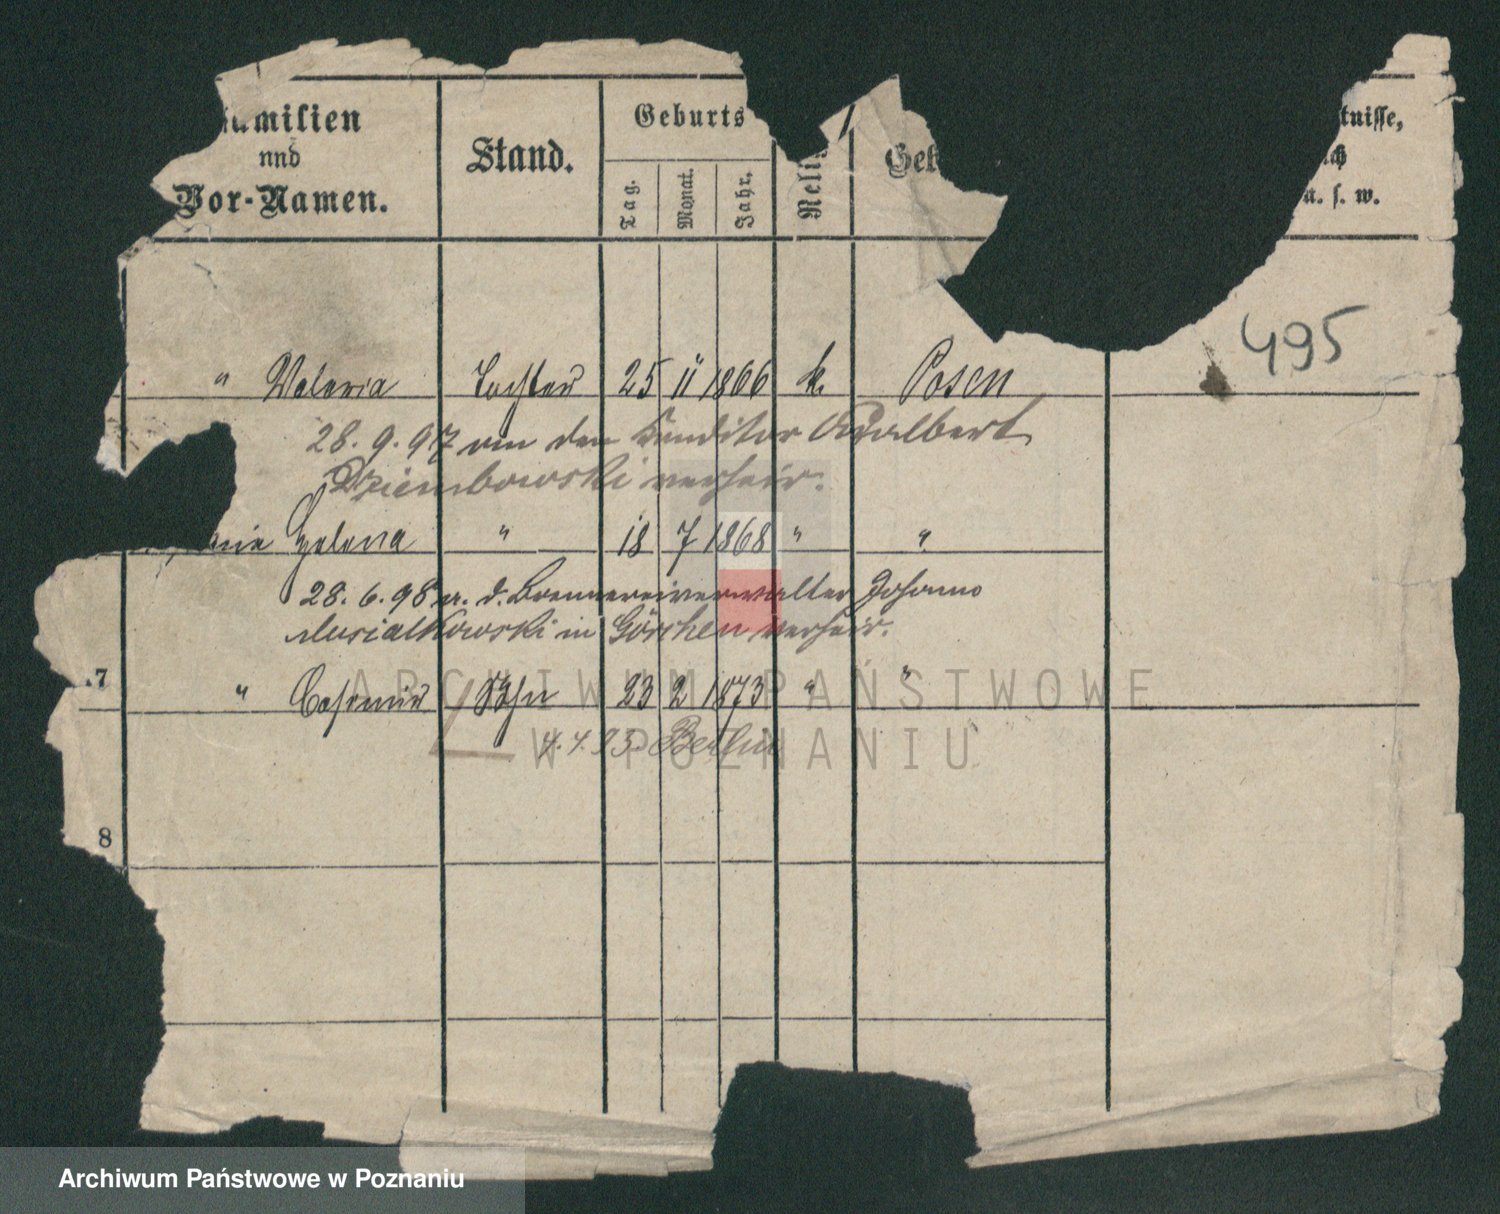 amilien
und
Vor-Namen.
Stand.
Geburts
Tag.
Monat.
Jahr.
Reli
Geb
tnisse,
ch
u. s. w.
495
" Valeria Tochter 25 11 1866 k. Posen
28. 9. 97 an den Conditor Adalbert
Dziembowski verheir.
Helena " 18 7 1868 " "
28. 6. 98 a. d. Brennereiverwalter Johann
Musialkowski in Görchen verheir.
.7 " Casimir Sohn 23 2 1873 " "
4. 4. 93. Berlin
8
ARCHIWUM PAŃSTWOWE
W POZNANIU
Archiwum Państwowe w Poznaniu